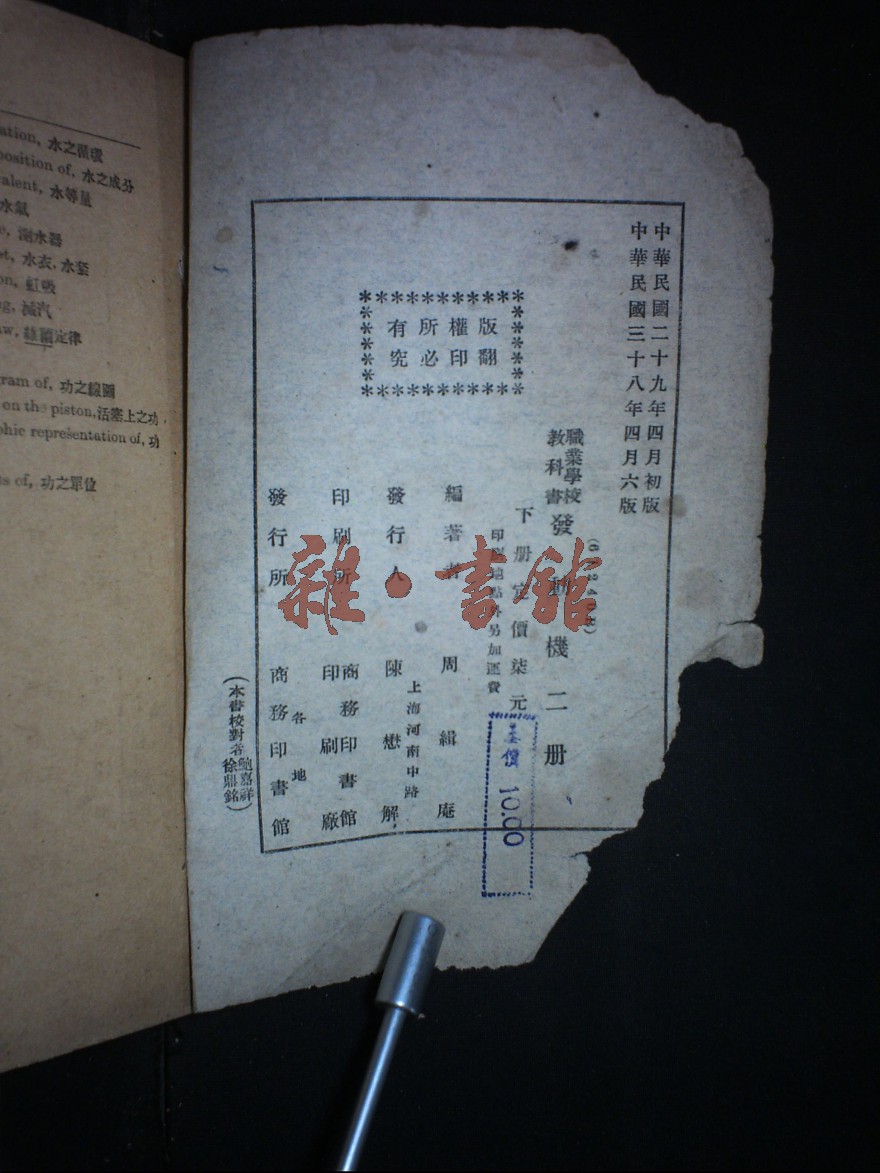 ation, 水之循環
position of, 水之成分
valent, 水等量
水氣
e, 測水器
et, 水衣, 水套
on, 虹吸
g, 減汽
aw, 絲爾定律
ram of, 功之線圖
on the piston, 活塞上之功
phic representation of, 功
ts of, 功之單位
中華民國二十九年四月初版
中華民國三十八年四月六版
版權所有
翻印必究
職業學校
教科書
發動機二册
下册定價柒元
印刷地點外另加運費
基價 10.00
編著者 周緝庵
上海河南中路
發行人 陳懋解
印刷所 商務印書館
印刷廠
各地
發行所 商務印書館
(本書校對者 鮑嘉祥
徐鼎銘)
雜·書館